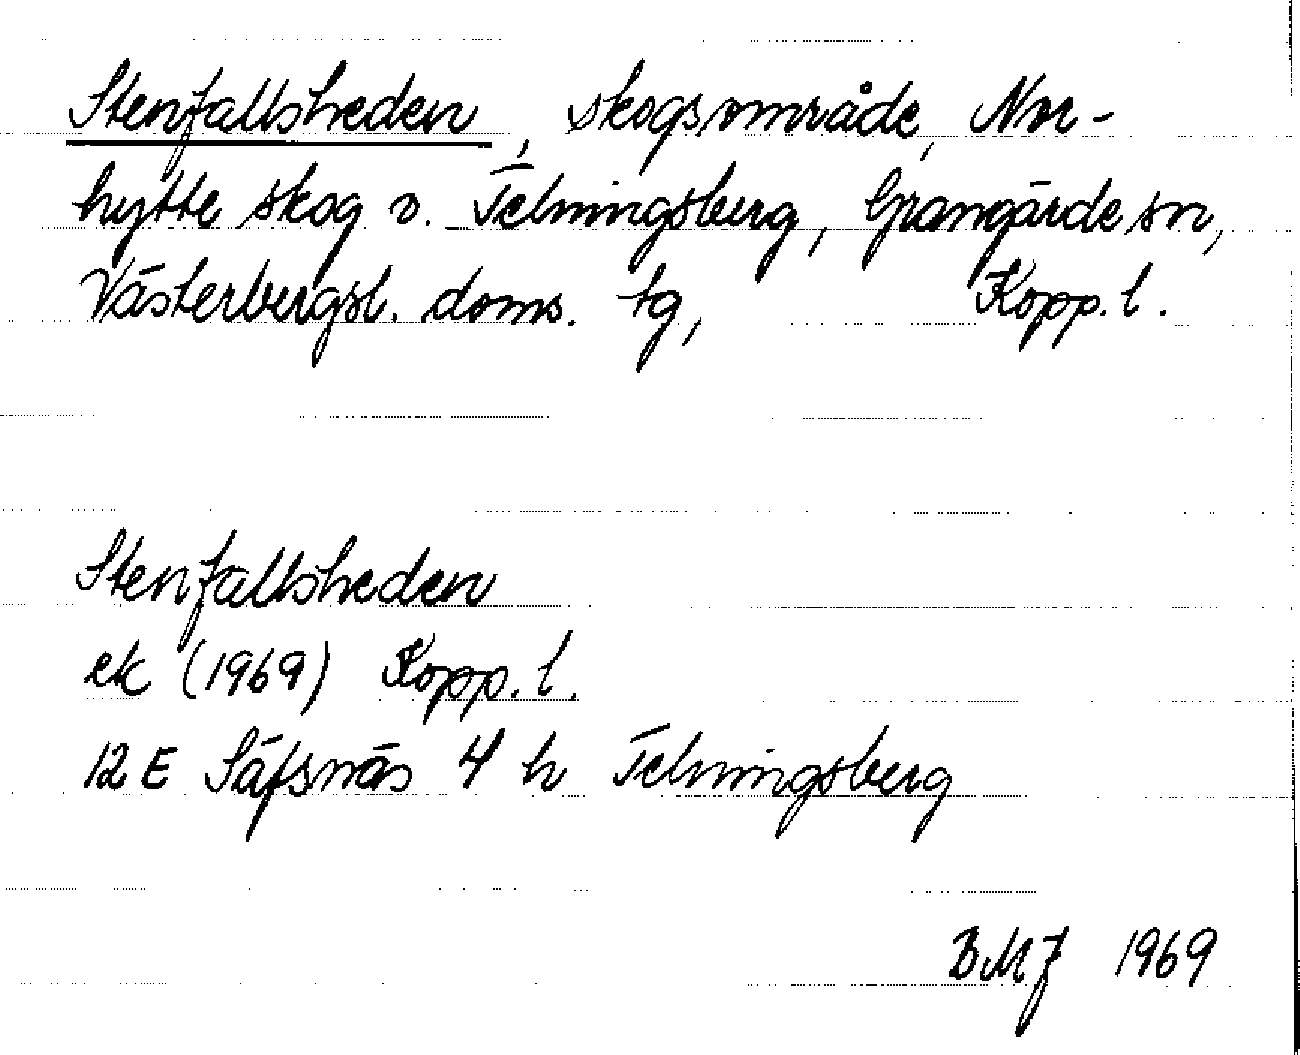 Stenfallsheden, skogsområde, Nor-
hytte skog v. Telningsberg, Grangärde sn,
Västerbergsl. doms. tg, Kopp. l.
Stenfallsheden
ek (1969) Kopp. l.
12 E Säfsnäs 4 h Telningsberg
BMJ 1969